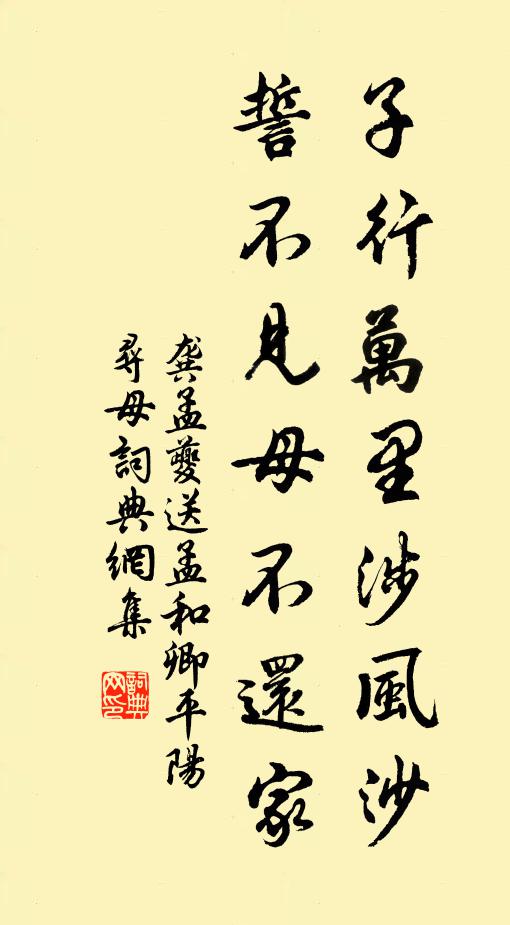 子行萬里涉風沙
誓不見母不還家
龔孟夔送孟和卿平陽
尋母詞典網集
詞典網印